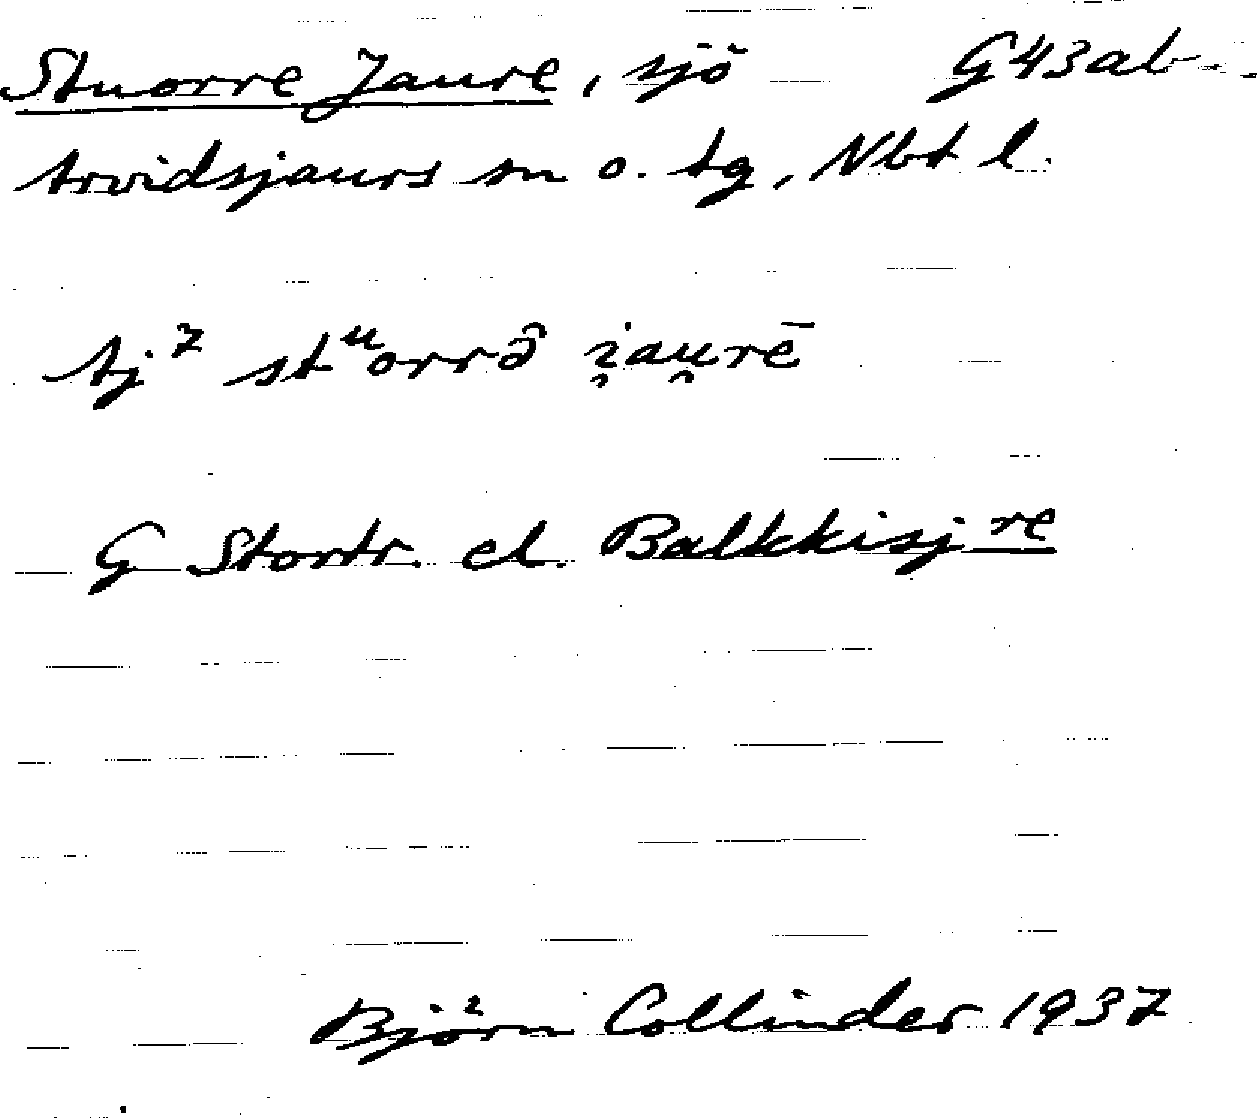 Stuorre Jaure, sjö G43ab
Arvidsjaurs sn o. tg, Nbt l.
Aj⁷ stᵘorrə̑ i̯au̯rē
G Stortr. el. Balkkisjʳᵉ
Björn Collinder 1937